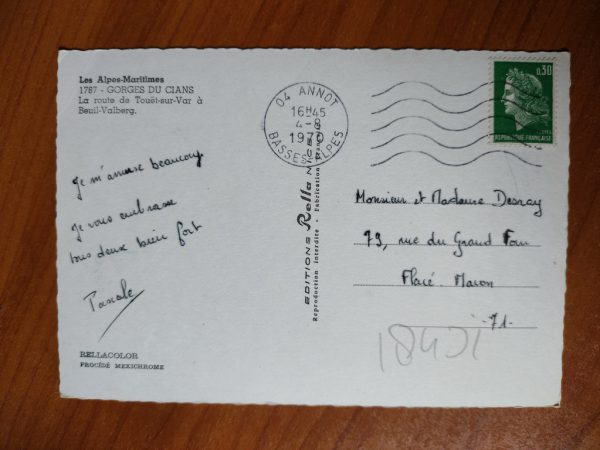 Les Alpes-Maritimes
1787 - GORGES DU CIANS
La route de Touët-sur-Var à
Beuil-Valberg.
04 ANNOT
16H45
4-8
1970
BASSES-ALPES
0,30
REPUBLIQUE FRANÇAISE
Je m'amuse beaucoup
Je vous embrasse
tous deux bien fort
Pascale
EDITIONS Rella NICE
Reproduction interdite - Fabrication Française
Monsieur et Madame Desray
79, rue du Grand Four
Flacé. Macon
-71-
RELLACOLOR
PROCÉDÉ MEXICHROME